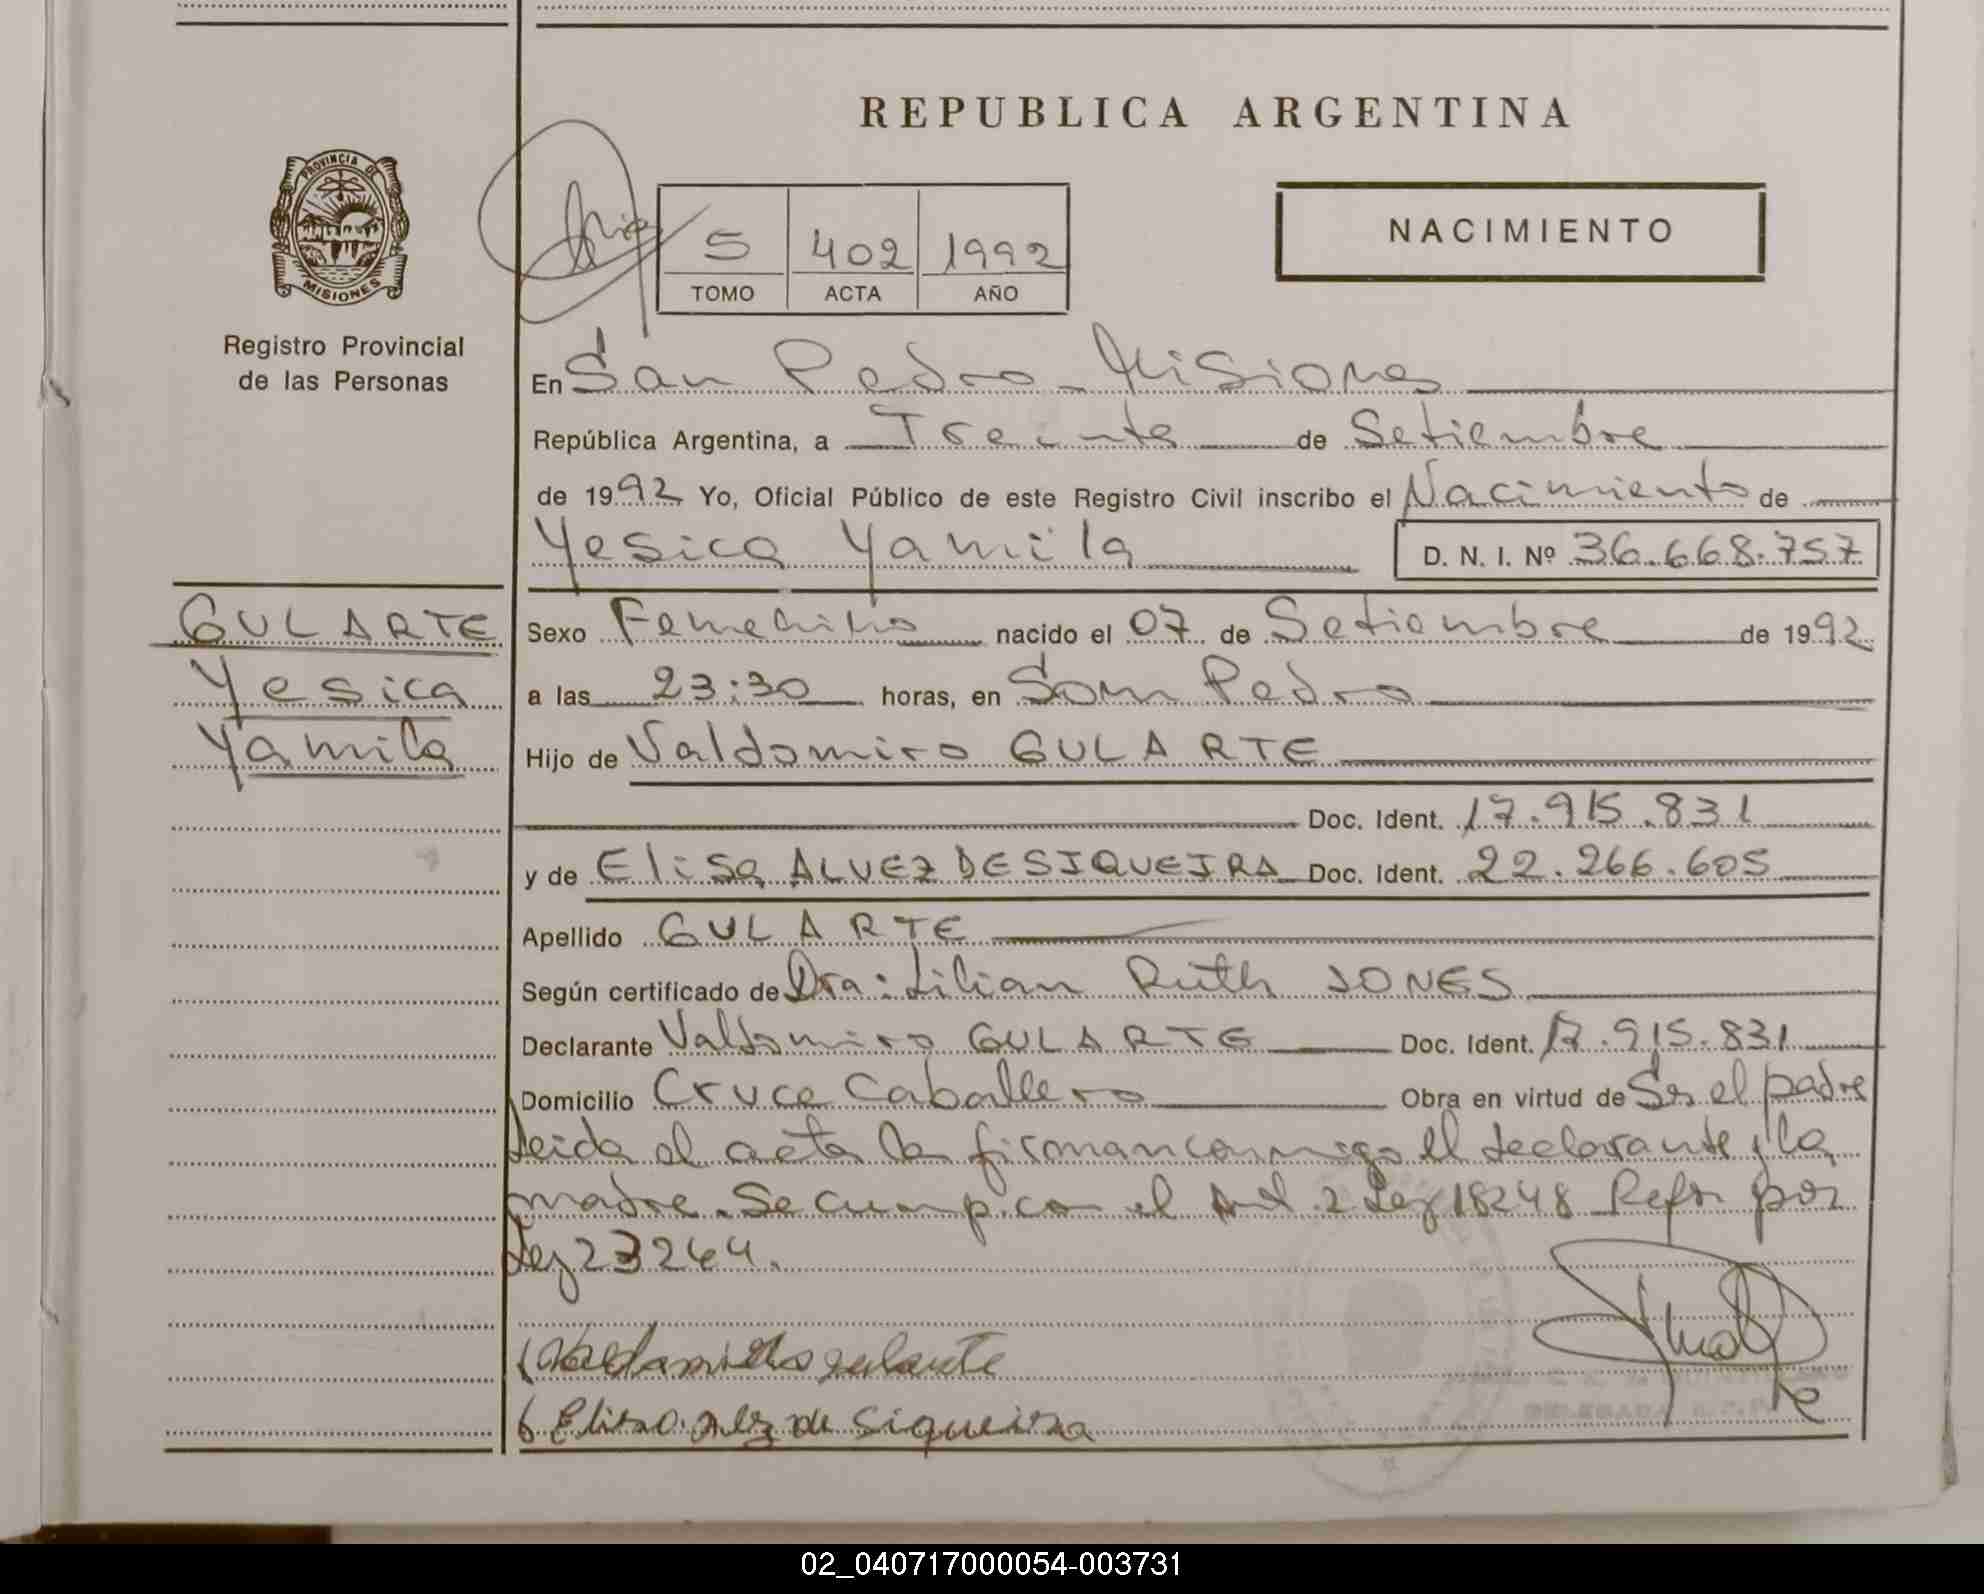 REPUBLICA ARGENTINA
PROVINCIA DE MISIONES
NACIMIENTO
5 402 1992
TOMO ACTA AÑO
Registro Provincial
de las Personas
En San Pedro - Misiones
República Argentina, a Treinta de Setiembre
de 1992 Yo, Oficial Público de este Registro Civil inscribo el Nacimiento de
Yesica Yamila D. N. I. Nº 36.668.757
GULARTE
Yesica
Yamila
Sexo Femenino nacido el 07 de Setiembre de 1992
a las 23:30 horas, en San Pedro
Hijo de Valdomiro GULARTE
Doc. Ident. 17.915.831
y de Elisa ALVEZ DE SIQUEIRA Doc. Ident. 22.266.605
Apellido GULARTE
Según certificado de Dra: Lilian Ruth JONES
Declarante Valdomiro GULARTE Doc. Ident. 17.915.831
Domicilio Cruce Caballero Obra en virtud de Ser el padre
Leida el acta la firman conmigo el declarante y la
madre. Se cump. con el Art. 2 Ley 18248 Refr por
Ley 23264.
Valdomiro gularte
Elisa de Siqueira
02_040717000054-003731